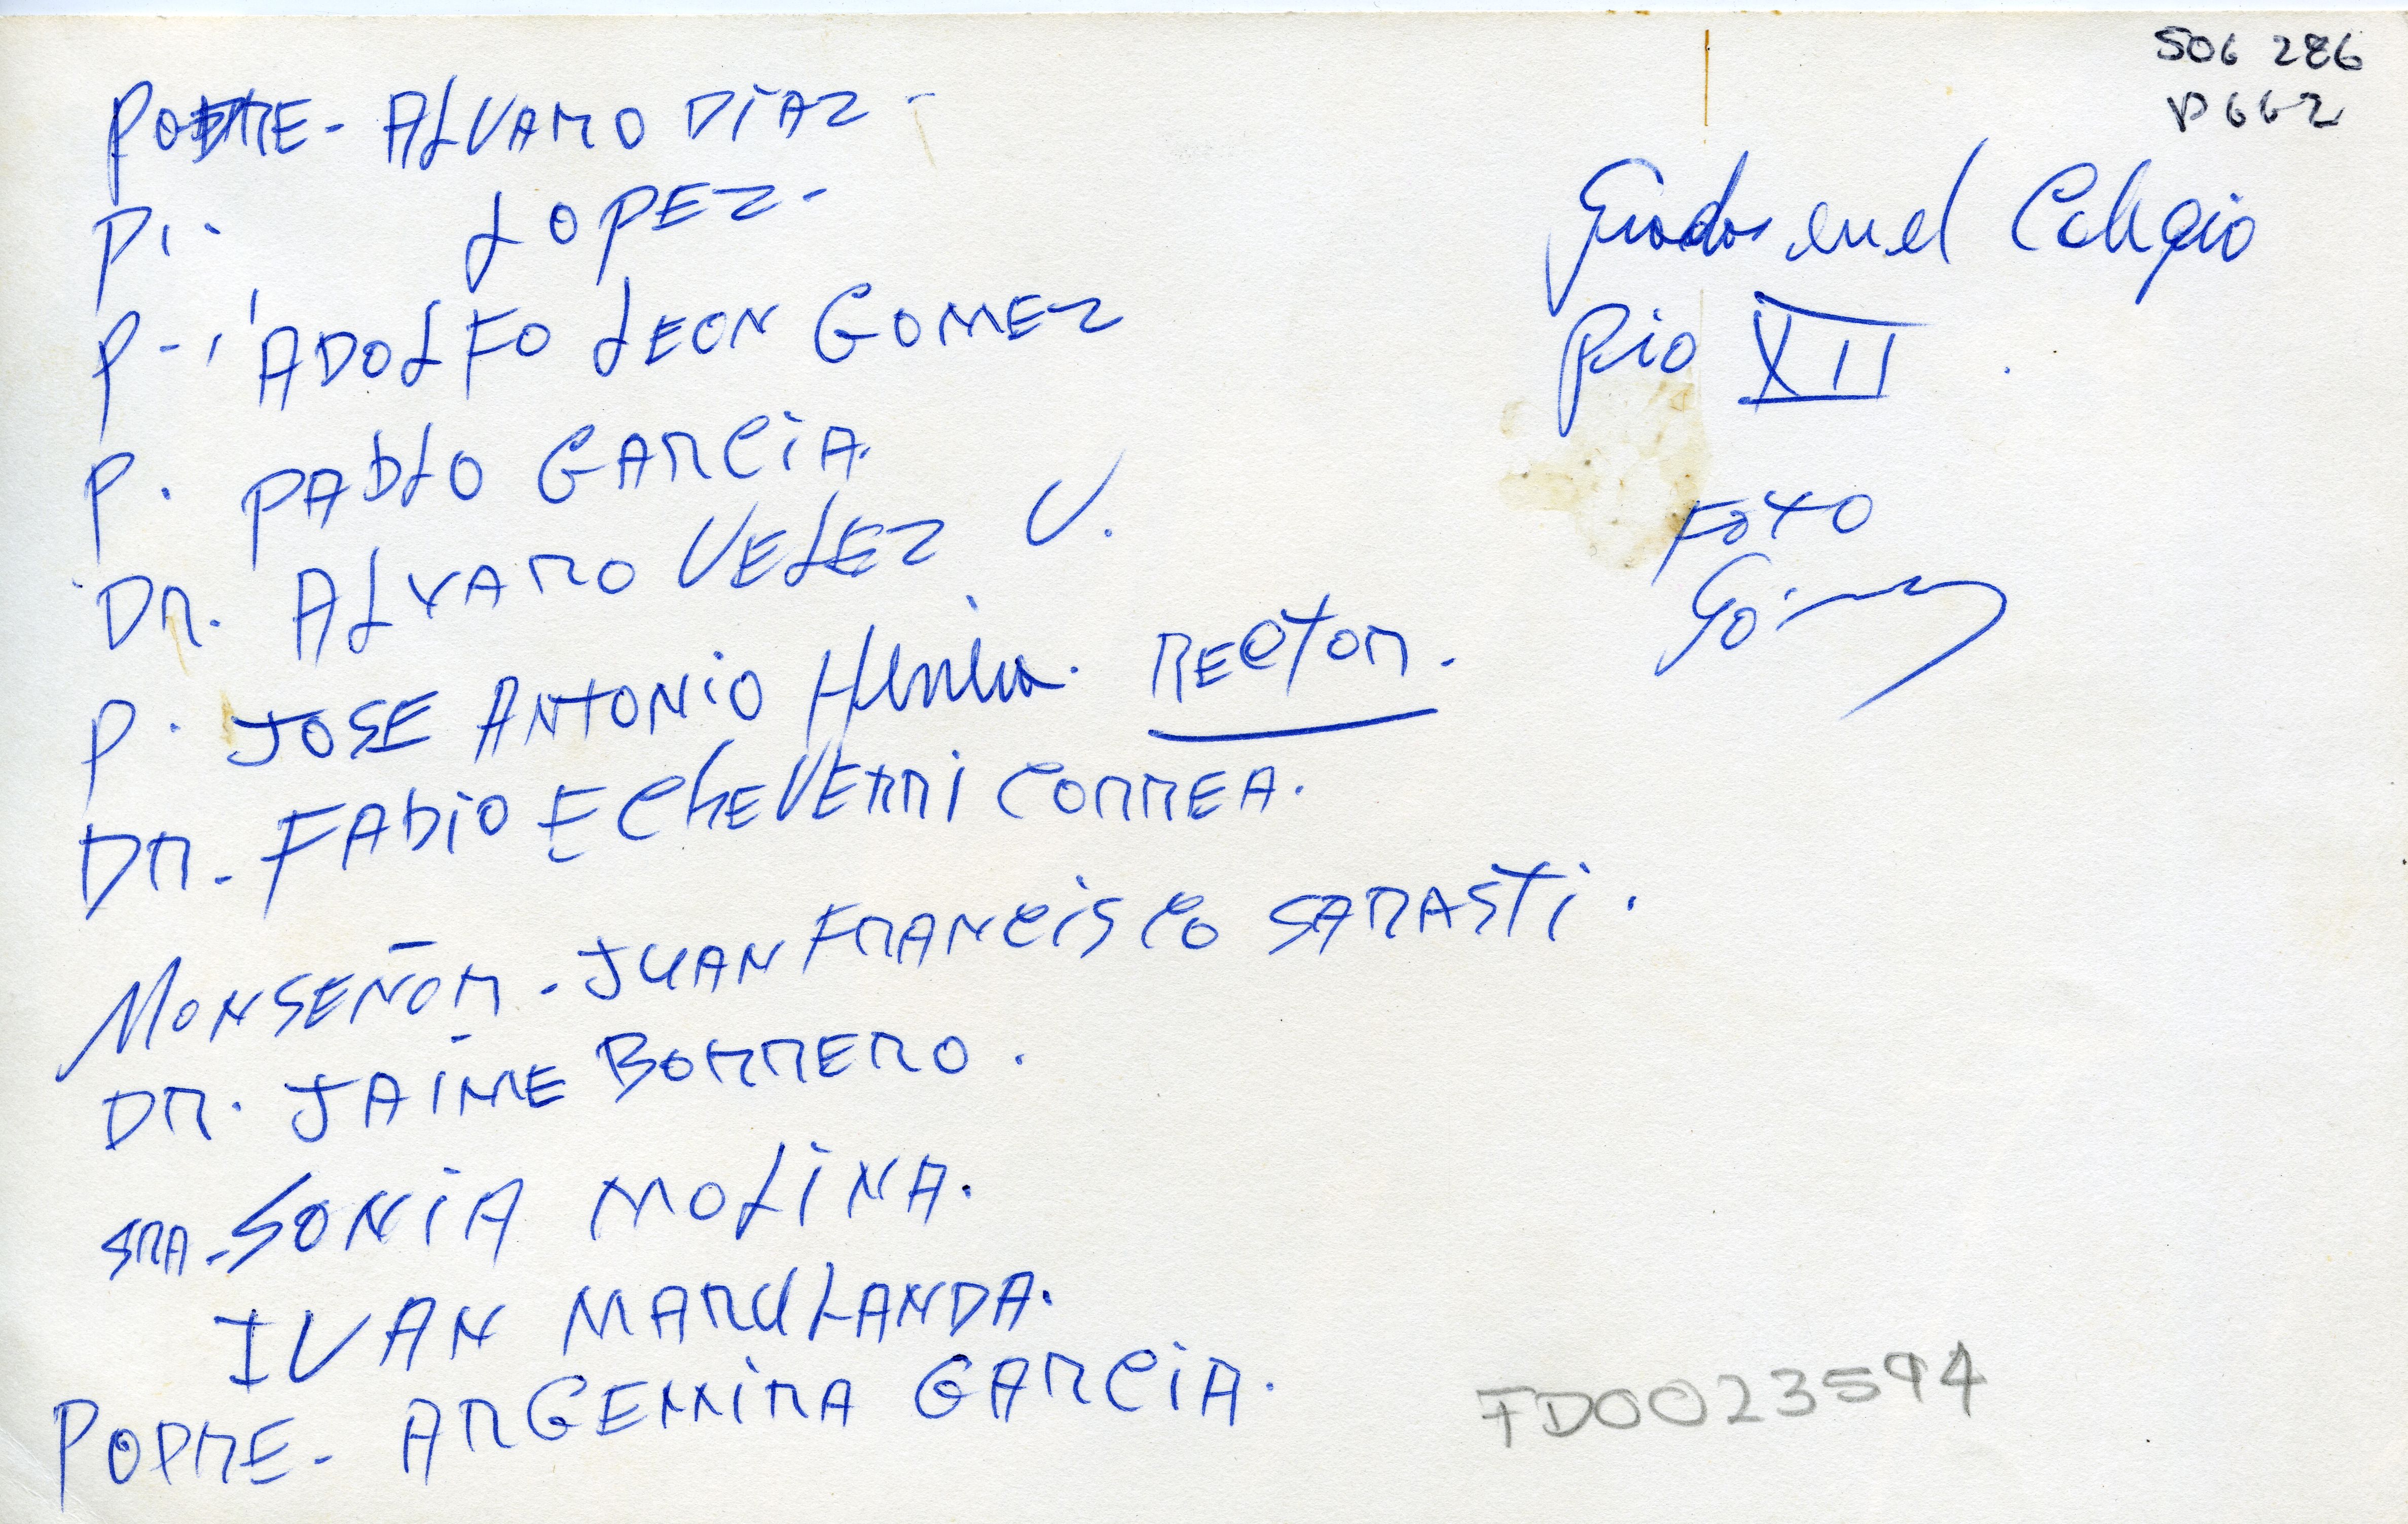 PODRE - ALVARO DIAZ -
P. - LOPEZ -
P - ADOLFO LEON GOMEZ
P. PABLO GARCIA.
DR. ALVARO VELEZ V.
P. JOSE ANTONIO RECTOR.
DR. FABIO ECHEVERRI CORREA.
MONSEÑOR - JUAN FRANCISCO SARASTI.
DR. JAIME BORRERO.
SRA - SONIA MOLINA.
IVAN MARULANDA.
PODRE - ARGEMIRA GARCIA.
506 286
P 662
Grados en el Colegio
Pio XII
FOTO
FD0023594